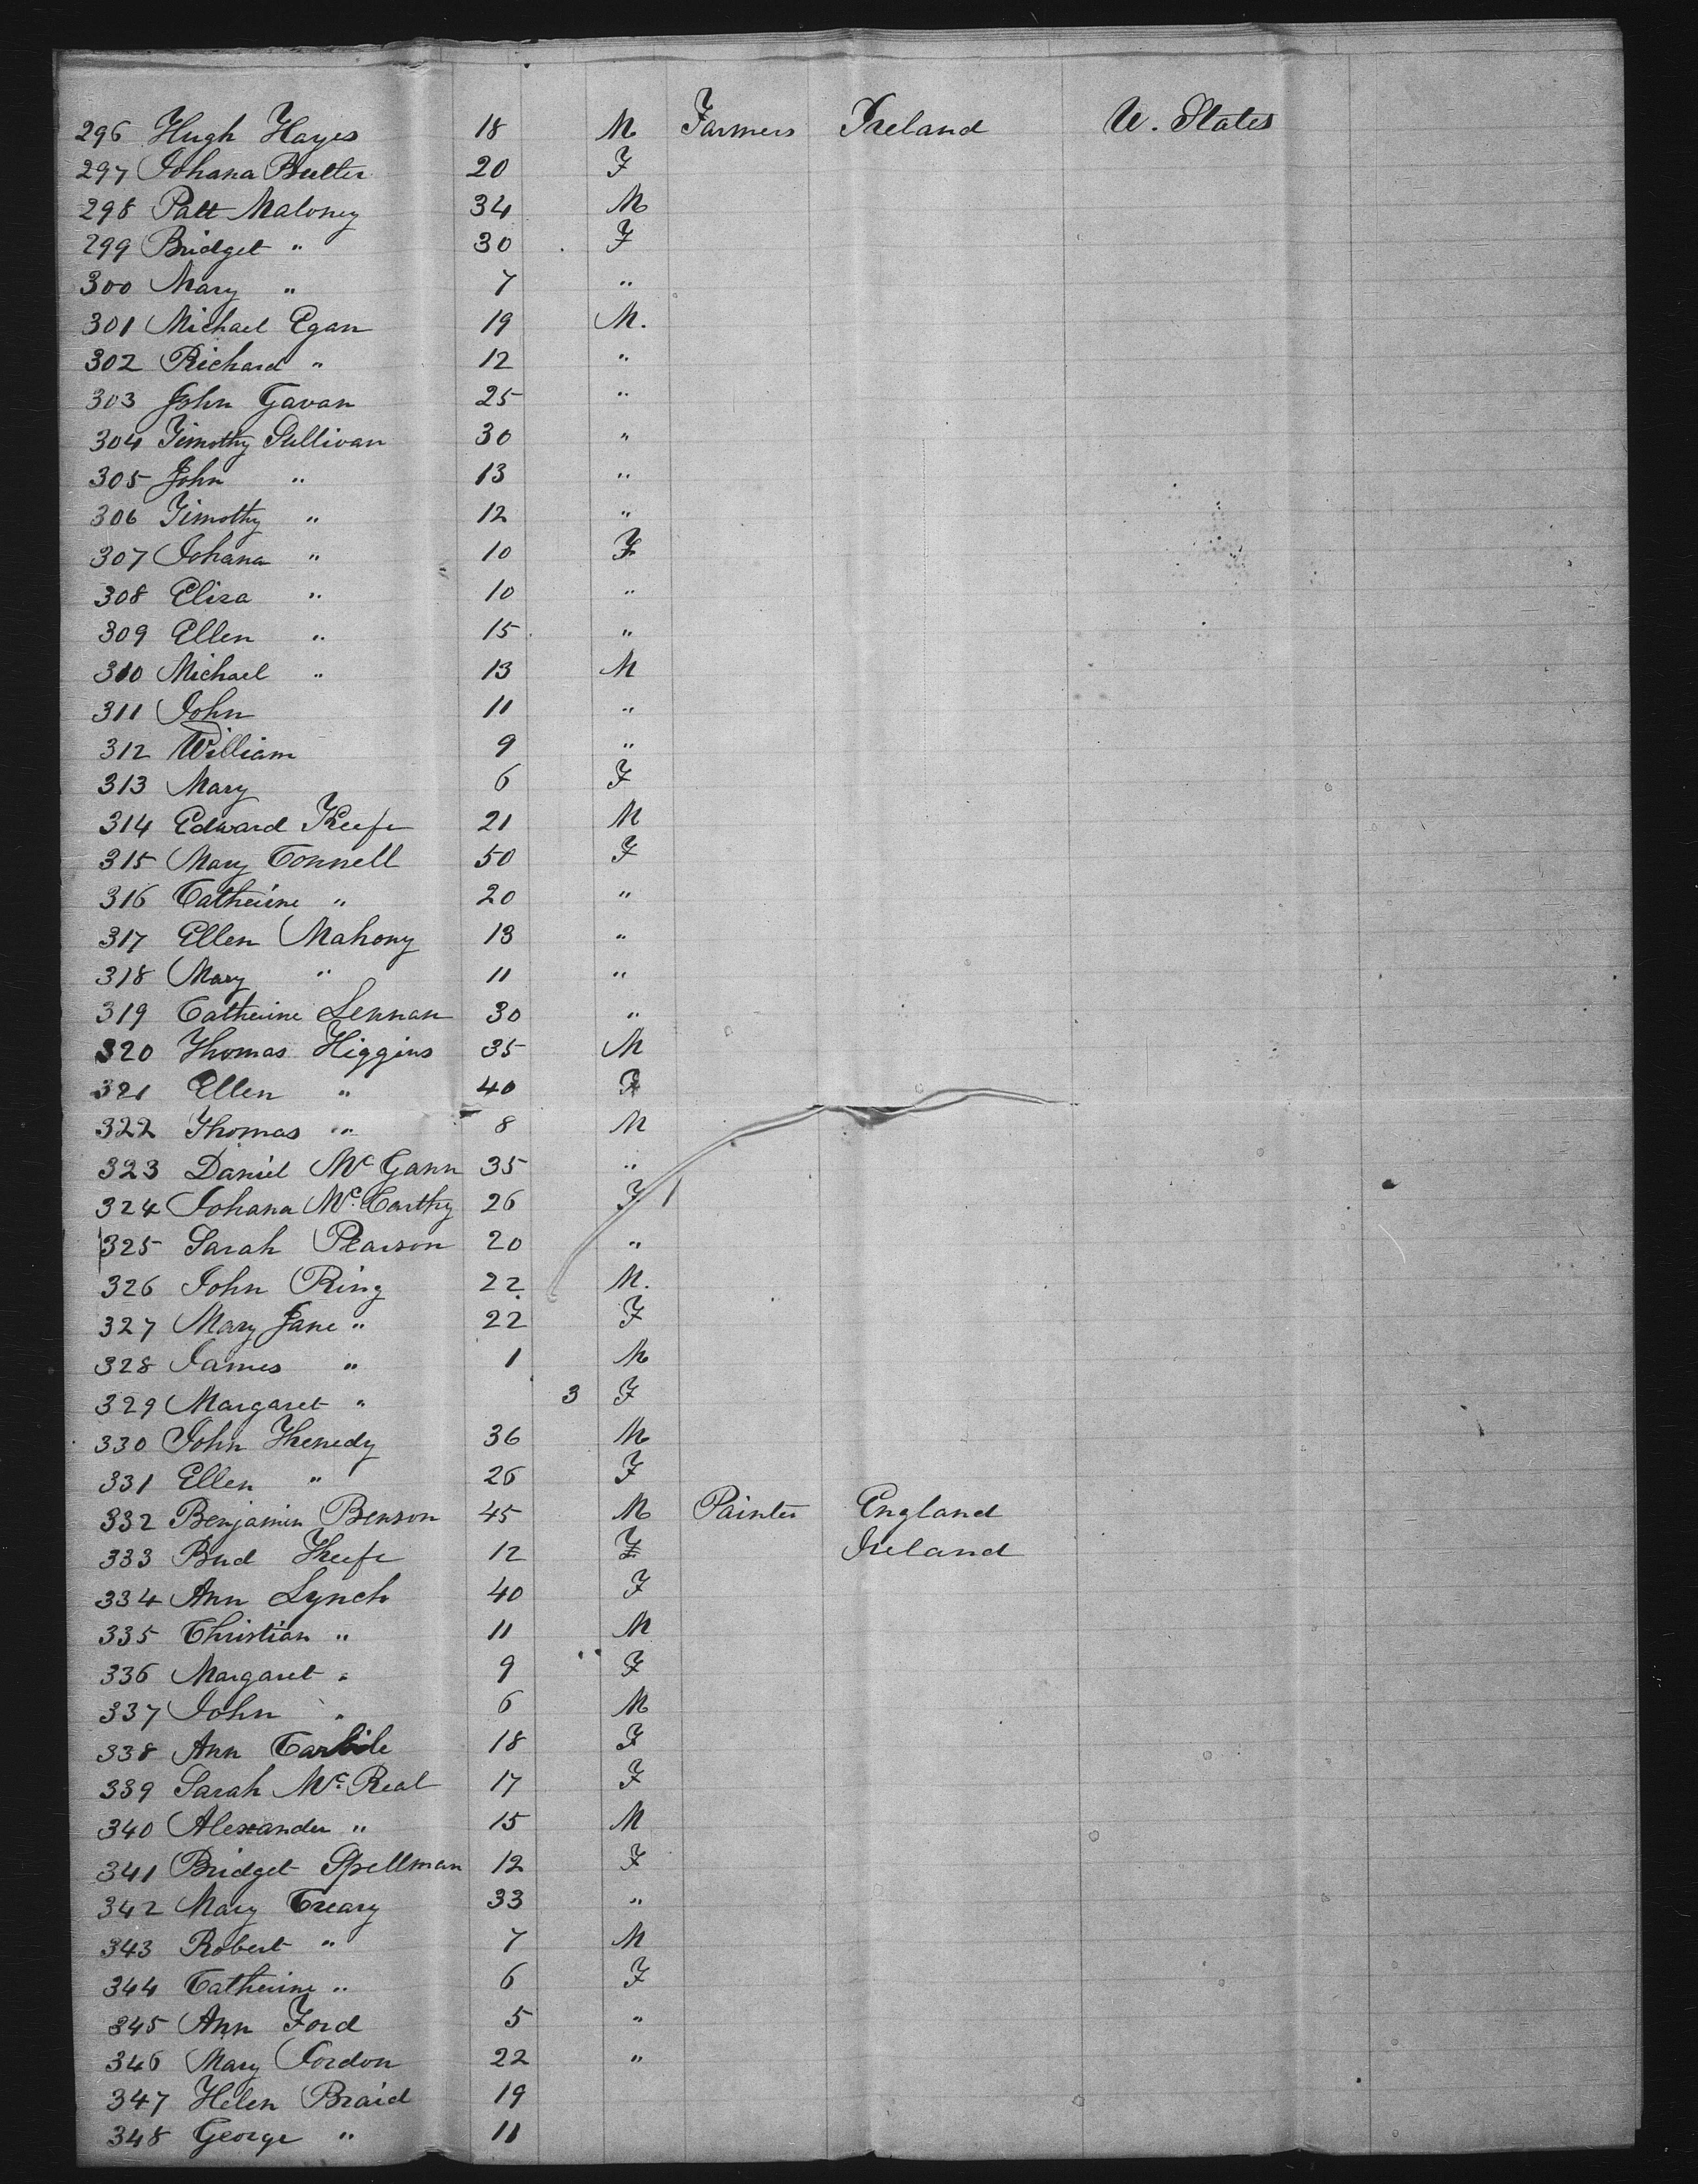 296 Hugh Hayes 18 M Farmers Ireland U. States
297 Johana Butter 20 F
298 Patt Maloney 34 M
299 Bridget " 30 F
300 Mary " 7 "
301 Michael Egan 19 M.
302 Richard " 12 "
303 John Gavan 25 "
304 Timothy Sullivan 30 "
305 John " 13 "
306 Timothy " 12 "
307 Johana " 10 F
308 Eliza " 10 "
309 Ellen " 15 "
310 Michael " 13 M
311 John 11 "
312 William 9 "
313 Mary 6 F
314 Edward Keefe 21 M
315 Mary Connell 50 F
316 Catherine " 20 "
317 Ellen Mahony 13 "
318 Mary " 11 "
319 Catherine Lennan 30 "
320 Thomas Higgins 35 M
321 Ellen " 40 F
322 Thomas " 8 M
323 Daniel McGann 35 "
324 Johana Mc.Carthy 26 F
325 Sarah Pearson 20 "
326 John Ring 22 M.
327 Mary Jane " 22 F
328 James " 1 M
329 Margaret " 3 F
330 John Kenedy 36 M
331 Ellen " 26 F
332 Benjamin Benson 45 M Painter England
333 Brid Keefe 12 F Ireland
334 Ann Lynch 40 F
335 Christian " 11 M
336 Margaret " 9 F
337 John " 6 M
338 Ann Carlile 18 F
339 Sarah Mc.Real 17 F
340 Alexander " 15 M
341 Bridget Spellman 12 F
342 Mary Creary 33 "
343 Robert " 7 M
344 Catherine " 6 F
345 Ann Ford 5 "
346 Mary Jordon 22 "
347 Helen Braid 19
348 George " 11